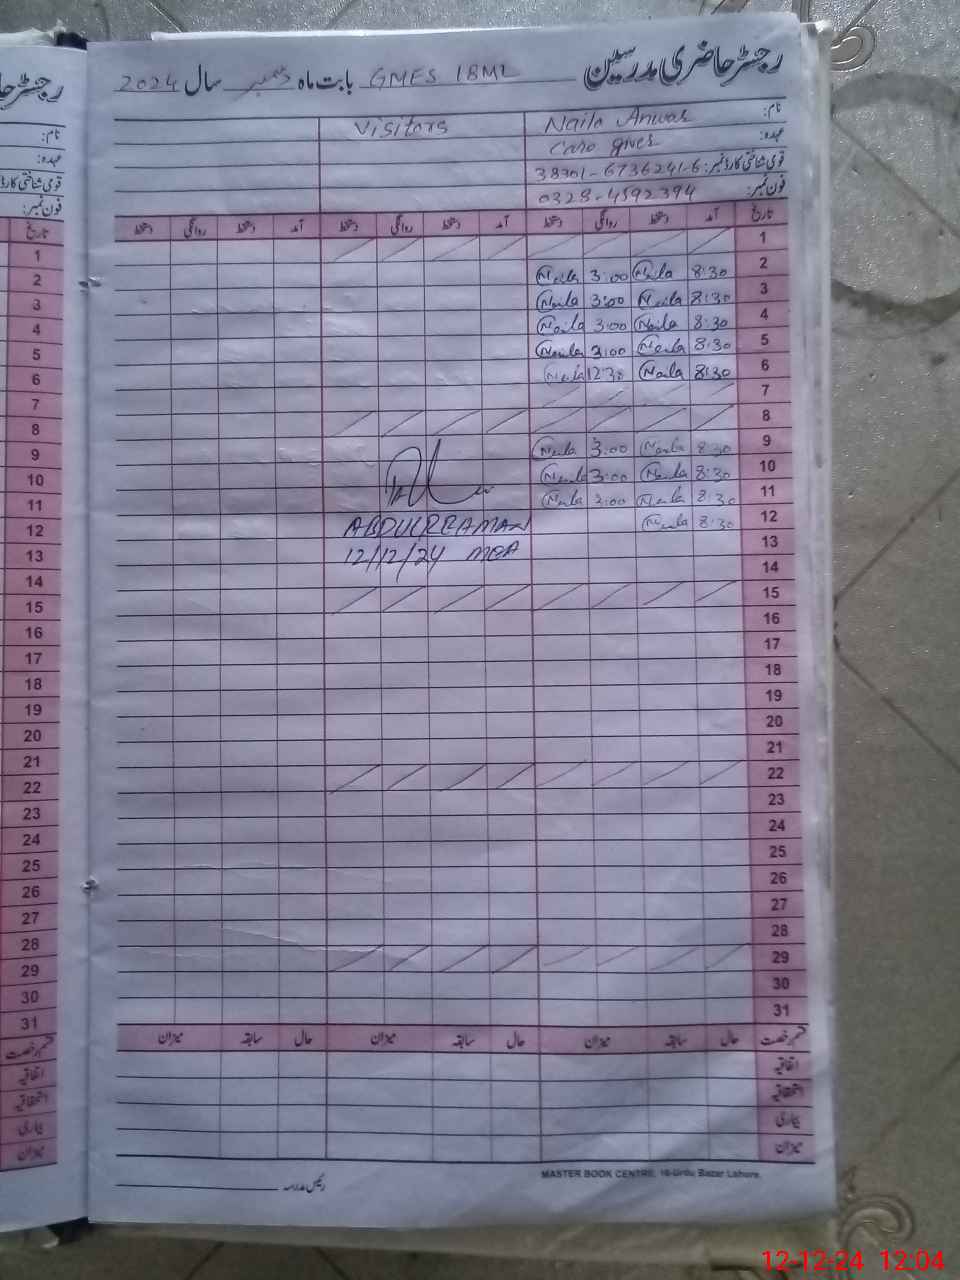 رجسٹر حاضری مدرسین بابت ماہ GMES 18ML دسمبر سال 2024
نام: Naila Anwar Visitors
عہدہ: Care giver
قومی شناختی کارڈ نمبر: 38301-6736241-6
فون نمبر: 0328-4592394
تاریخ آمد دستخط روانگی دستخط آمد دستخط روانگی دستخط آمد دستخط روانگی دستخط
1
2 8:30 Naila 3:00 Naila
3 8:30 Naila 3:00 Naila
4 8:30 Naila 3:00 Naila
5 8:30 Naila 3:00 Naila
6 8:30 Naila 12:30 Naila
7
8
9 8:30 Naila 3:00 Naila
10 8:30 Naila 3:00 Naila
11 8:30 Naila 3:00 Naila
12 8:30 Naila ABDULREAMAN
13 12/12/24 MEA
14
15
16
17
18
19
20
21
22
23
24
25
26
27
28
29
30
31
قسم رخصت حال سابقہ میزان حال سابقہ میزان حال سابقہ میزان
اتفاقیہ
استحقاقیہ
بیماری
میزان
MASTER BOOK CENTRE, 16-Urdu Bazar Lahore.
رئیس مدرسہ
رجسٹر حا
نام:
عہدہ:
قومی شناختی کارڈ
فون نمبر:
تاریخ
1
2
3
4
5
6
7
8
9
10
11
12
13
14
15
16
17
18
19
20
21
22
23
24
25
26
27
28
29
30
31
قسم رخصت
اتفاقیہ
استحقاقیہ
بیماری
میزان
12-12-24 12:04